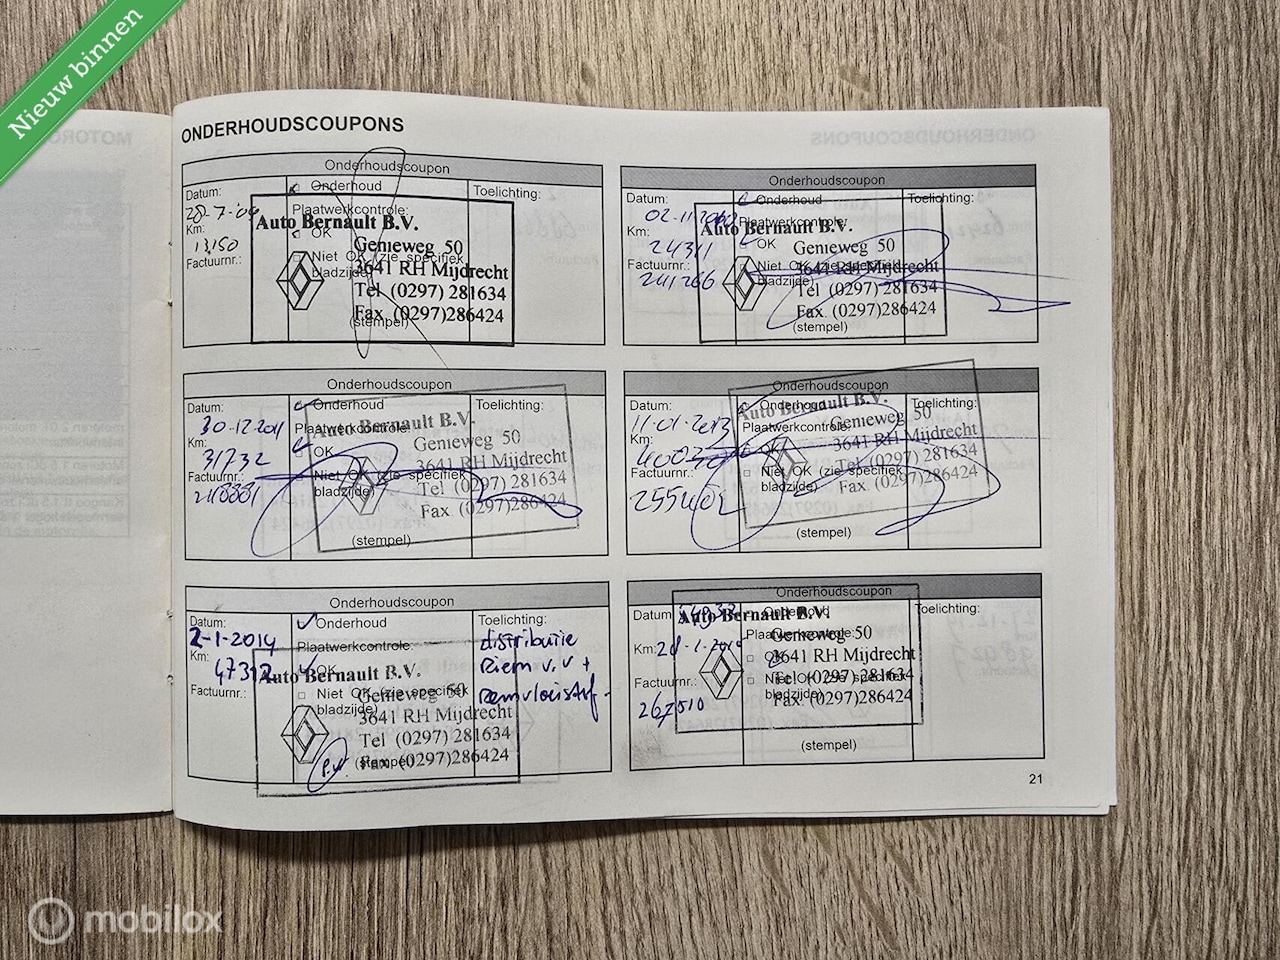 Nieuw binnen
ONDERHOUDSCOUPONS
Onderhoudscoupon
Datum:
Onderhoud
Toelichting:
Plaatwerkcontrole:
Km:
13,150
OK
Factuurnr.:
Niet OK (zie specifiek
bladzijde)
Auto Bernault B.V.
Genieweg 50
3641 RH Mijdrecht
Tel (0297) 281634
Fax. (0297)286424
(stempel)
Onderhoudscoupon
Datum:
Onderhoud
Toelichting:
Plaatwerkcontrole:
Km:
24311
OK
Factuurnr.:
241266
Niet OK (zie specifiek
bladzijde)
Auto Bernault B.V.
Genieweg 50
3641 RH Mijdrecht
Tel (0297) 281634
Fax. (0297)286424
(stempel)
Onderhoudscoupon
Datum:
30-12-2011
Onderhoud
Toelichting:
Plaatwerkcontrole:
Km:
31732
OK
Factuurnr.:
Niet OK (zie specifiek
bladzijde)
Auto Bernault B.V.
Genieweg 50
3641 RH Mijdrecht
Tel (0297) 281634
Fax. (0297)286424
(stempel)
Onderhoudscoupon
Datum:
11-01-2013
Onderhoud
Toelichting:
Plaatwerkcontrole:
Km:
OK
Factuurnr.:
255402
Niet OK (zie specifiek
bladzijde)
Auto Bernault B.V.
Genieweg 50
3641 RH Mijdrecht
Tel (0297) 281634
Fax. (0297)286424
(stempel)
Onderhoudscoupon
Datum:
2-1-2014
Onderhoud
Toelichting:
distributie
Riem v.v +
remvloeistof
Plaatwerkcontrole:
Km:
OK
Factuurnr.:
Niet OK (zie specifiek
bladzijde)
Auto Bernault B.V.
Genieweg 50
3641 RH Mijdrecht
Tel (0297) 281634
Fax. (0297)286424
(stempel)
Onderhoudscoupon
Datum:
Onderhoud
Toelichting:
Plaatwerkcontrole:
Km:
OK
Factuurnr.:
267510
Niet OK (zie specifiek
bladzijde)
Auto Bernault B.V.
Genieweg 50
3641 RH Mijdrecht
Tel (0297) 281634
Fax. (0297)286424
(stempel)
21
mobilox